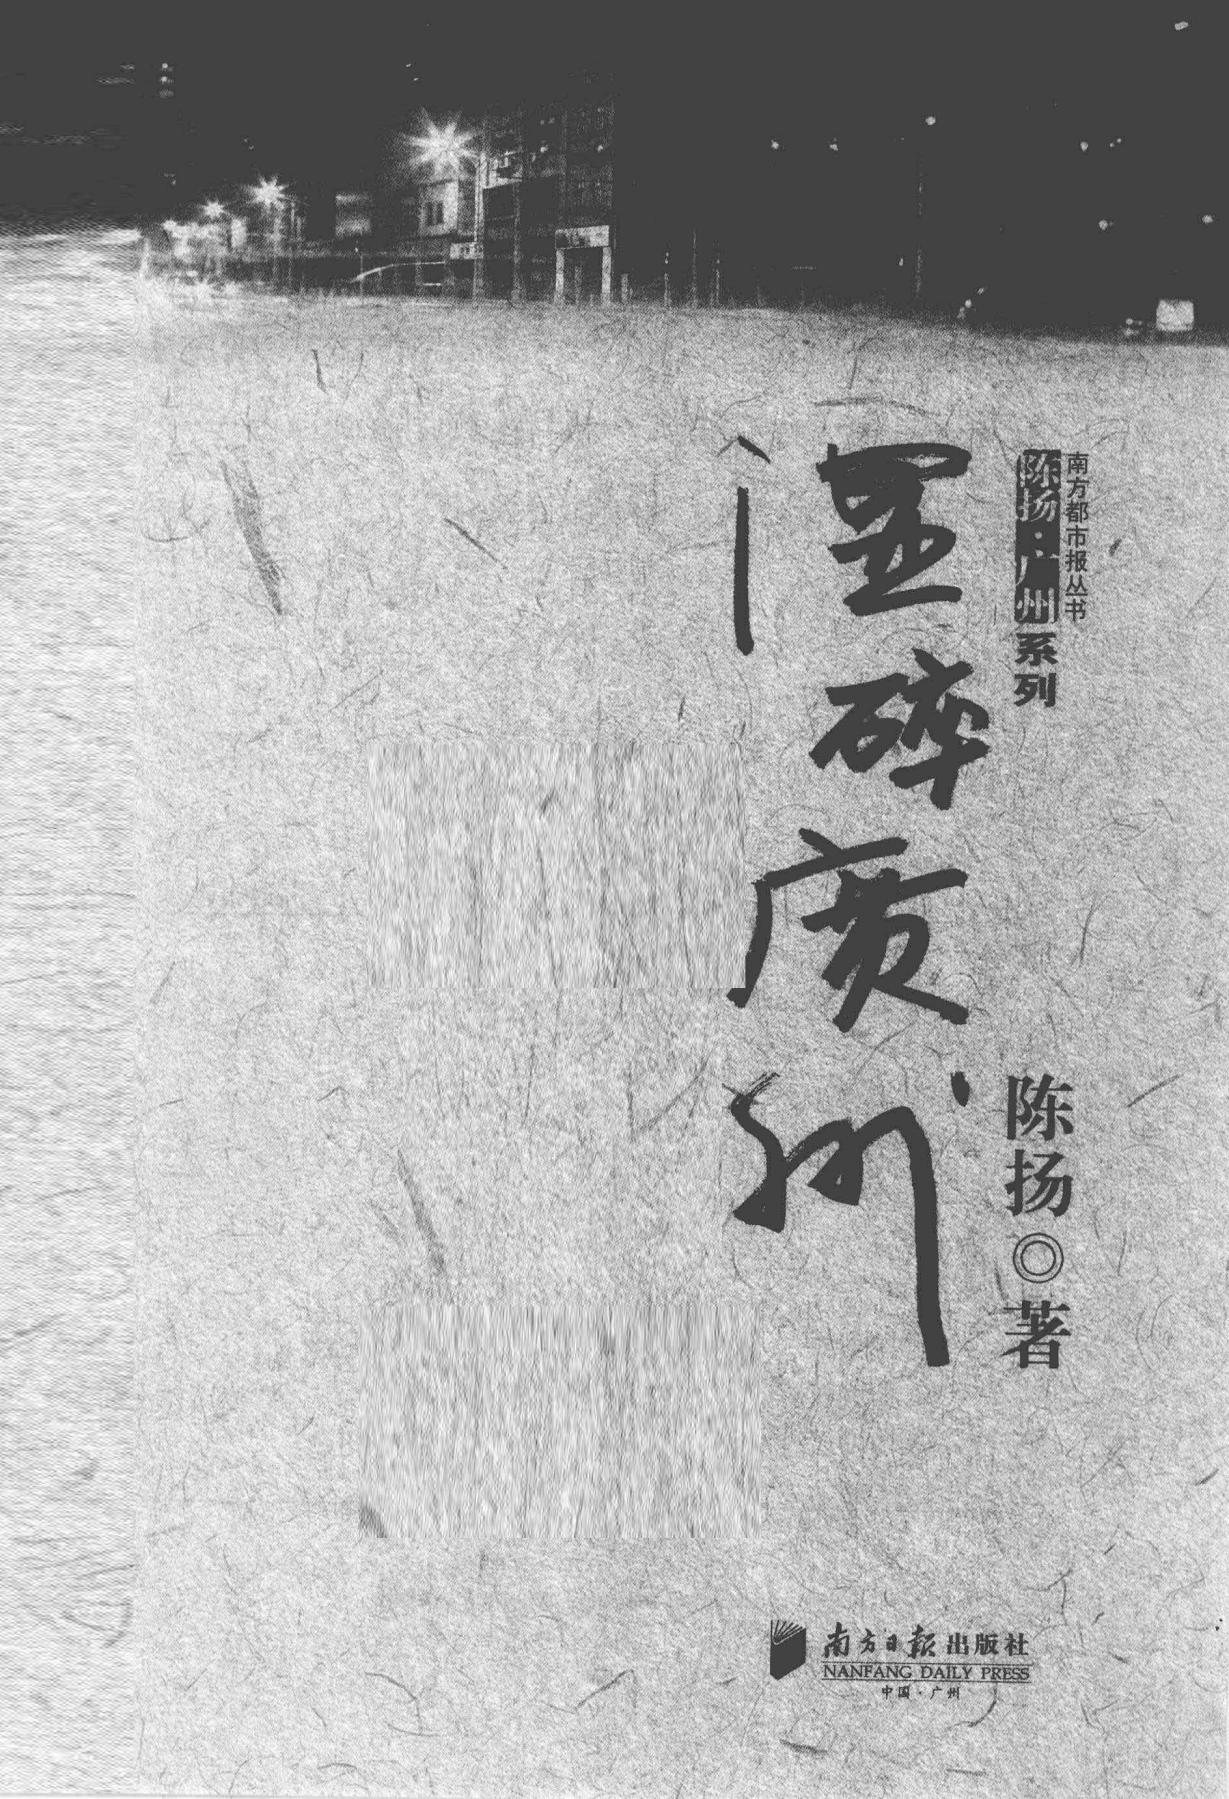 南方都市报丛书
陈扬·广州系列
湿碎廣州
陈扬◎著
南方日报出版社
NANFANG DAILY PRESS
中国·广州